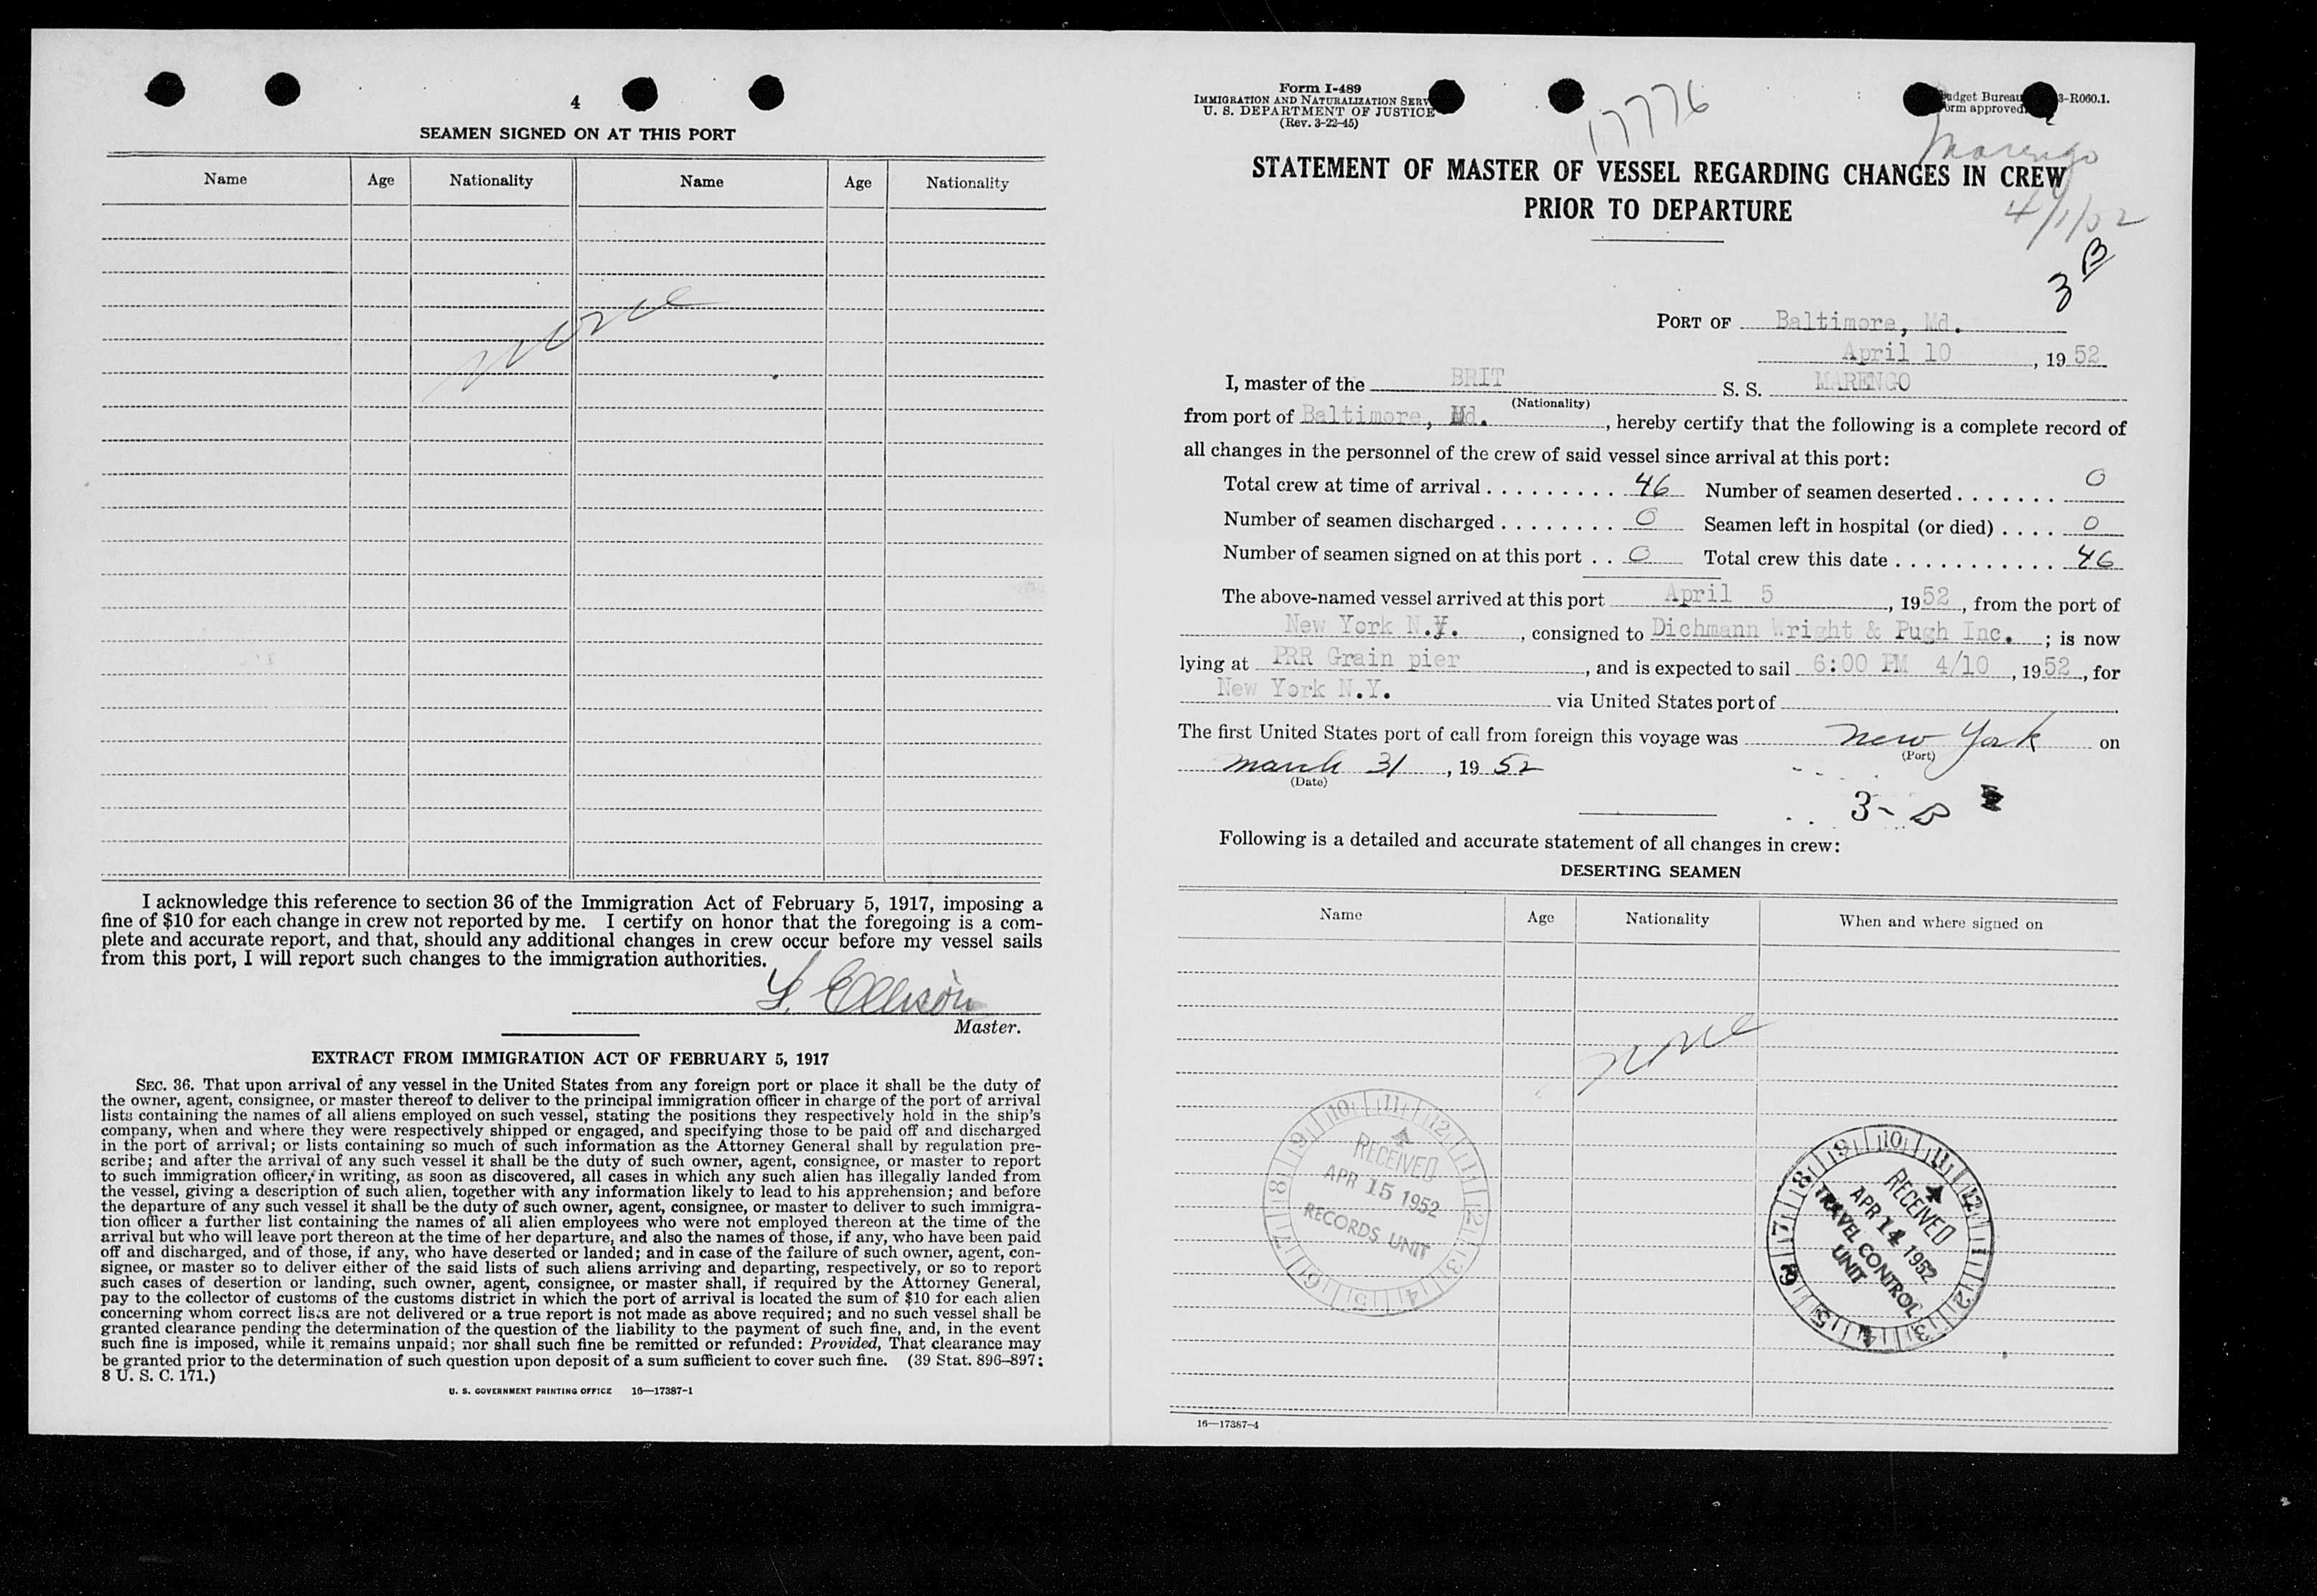 4
SEAMEN SIGNED ON AT THIS PORT
Name Age Nationality Name Age Nationality
none
I acknowledge this reference to section 36 of the Immigration Act of February 5, 1917, imposing a
fine of $10 for each change in crew not reported by me. I certify on honor that the foregoing is a com-
plete and accurate report, and that, should any additional changes in crew occur before my vessel sails
from this port, I will report such changes to the immigration authorities.
Ellison
Master.
EXTRACT FROM IMMIGRATION ACT OF FEBRUARY 5, 1917
SEC. 36. That upon arrival of any vessel in the United States from any foreign port or place it shall be the duty of
the owner, agent, consignee, or master thereof to deliver to the principal immigration officer in charge of the port of arrival
lists containing the names of all aliens employed on such vessel, stating the positions they respectively hold in the ship's
company, when and where they were respectively shipped or engaged, and specifying those to be paid off and discharged
in the port of arrival; or lists containing so much of such information as the Attorney General shall by regulation pre-
scribe; and after the arrival of any such vessel it shall be the duty of such owner, agent, consignee, or master to report
to such immigration officer, in writing, as soon as discovered, all cases in which any such alien has illegally landed from
the vessel, giving a description of such alien, together with any information likely to lead to his apprehension; and before
the departure of any such vessel it shall be the duty of such owner, agent, consignee, or master to deliver to such immigra-
tion officer a further list containing the names of all alien employees who were not employed thereon at the time of the
arrival but who will leave port thereon at the time of her departure, and also the names of those, if any, who have been paid
off and discharged, and of those, if any, who have deserted or landed; and in case of the failure of such owner, agent, con-
signee, or master so to deliver either of the said lists of such aliens arriving and departing, respectively, or so to report
such cases of desertion or landing, such owner, agent, consignee, or master shall, if required by the Attorney General,
pay to the collector of customs of the customs district in which the port of arrival is located the sum of $10 for each alien
concerning whom correct lists are not delivered or a true report is not made as above required; and no such vessel shall be
granted clearance pending the determination of the question of the liability to the payment of such fine, and, in the event
such fine is imposed, while it remains unpaid; nor shall such fine be remitted or refunded: Provided, That clearance may
be granted prior to the determination of such question upon deposit of a sum sufficient to cover such fine. (39 Stat. 896–897;
8 U. S. C. 171.)
U. S. GOVERNMENT PRINTING OFFICE 16—17387-1
Form I-489
IMMIGRATION AND NATURALIZATION SERV
U. S. DEPARTMENT OF JUSTICE
(Rev. 3-22-45)
17776
Budget Bureau 3-R060.1.
orm approved.
Marengo
4/1/52
3 B
STATEMENT OF MASTER OF VESSEL REGARDING CHANGES IN CREW
PRIOR TO DEPARTURE
PORT OF Baltimore, Md.
April 10, 1952
I, master of the BRIT S. S. MARENGO
(Nationality)
from port of Baltimore, Md., hereby certify that the following is a complete record of
all changes in the personnel of the crew of said vessel since arrival at this port:
Total crew at time of arrival . . . . . . . . . 46 Number of seamen deserted . . . . . . . 0
Number of seamen discharged . . . . . . . . 0 Seamen left in hospital (or died) . . . . 0
Number of seamen signed on at this port . . 0 Total crew this date . . . . . . . . . . . . 46
The above-named vessel arrived at this port April 5, 1952, from the port of
New York N.Y., consigned to Dichmann Wright & Pugh Inc.; is now
lying at PRR Grain pier, and is expected to sail 6:00 PM 4/10, 1952, for
New York N.Y. via United States port of
The first United States port of call from foreign this voyage was New York on
(Port)
March 31, 1952
(Date)
3-B
Following is a detailed and accurate statement of all changes in crew:
DESERTING SEAMEN
Name Age Nationality When and where signed on
none
RECEIVED
APR 15 1952
RECORDS UNIT
RECEIVED
APR 14 1952
TRAVEL CONTROL
UNIT
16—17387-4